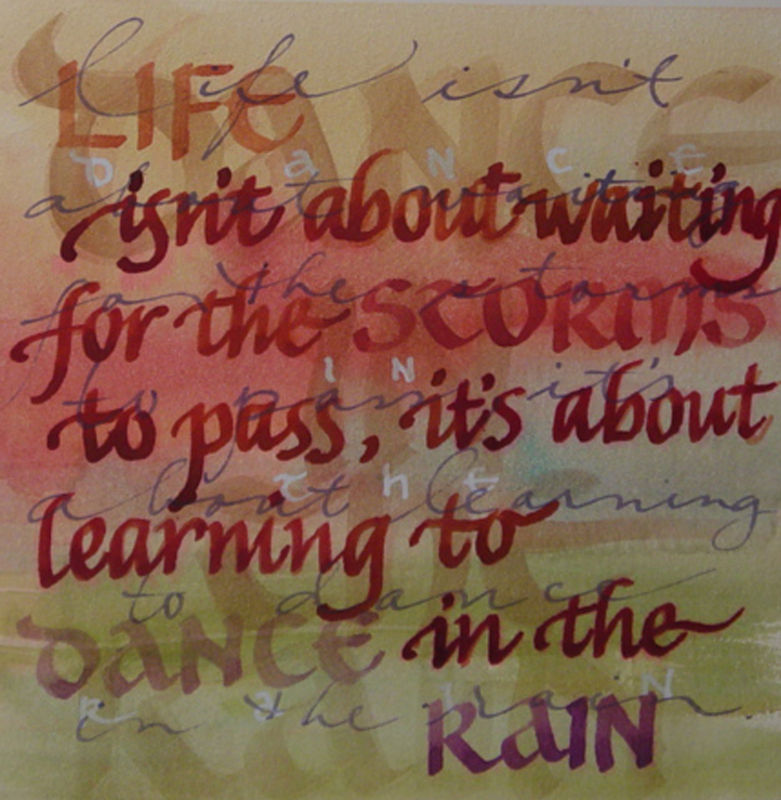 Life isn't
LIFE
DaNCE
DaNCE
about waiting
isn't about waiting
for the storms
for the STORMS
IN
to pass it's
to pass, it's about
THE
about learning
learning to
to dance
DaNCE in the
RaIN
in the rain.
RaIN